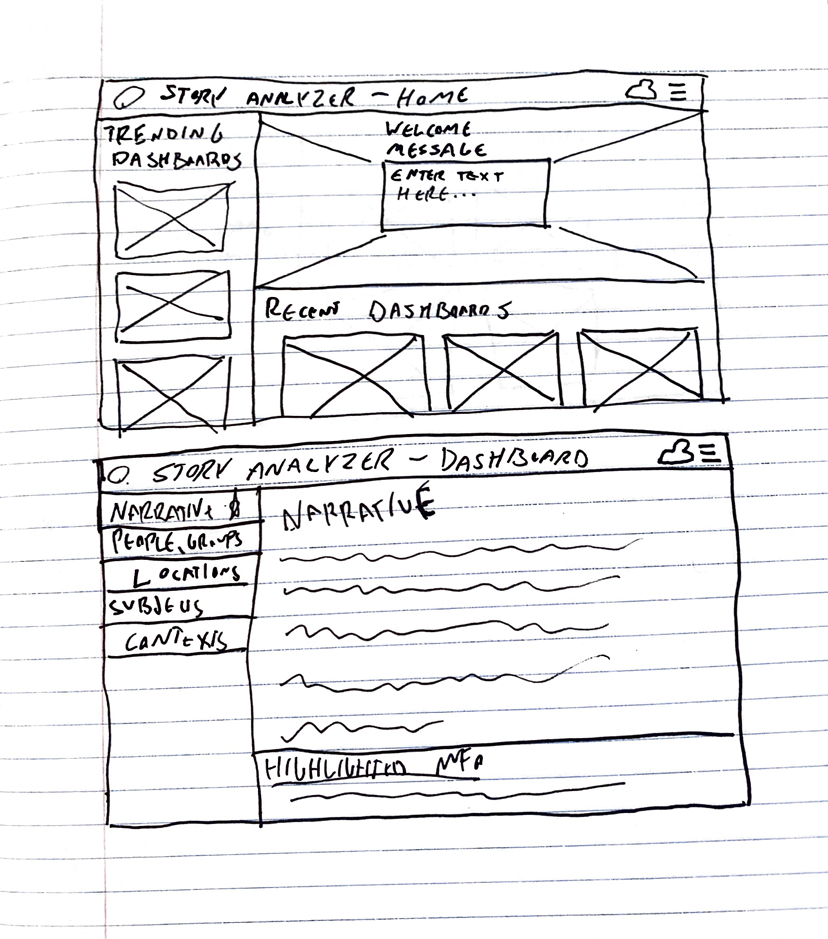 STORY ANALYZER - HOME
TRENDING
DASHBOARDS
WELCOME
MESSAGE
ENTER TEXT
HERE...
RECENT DASHBOARDS
STORY ANALYZER - DASHBOARD
NARRATIVE
PEOPLE, GROUPS
LOCATIONS
SUBJECTS
CONTEXTS
NARRATIVE
HIGHLIGHTED INFO